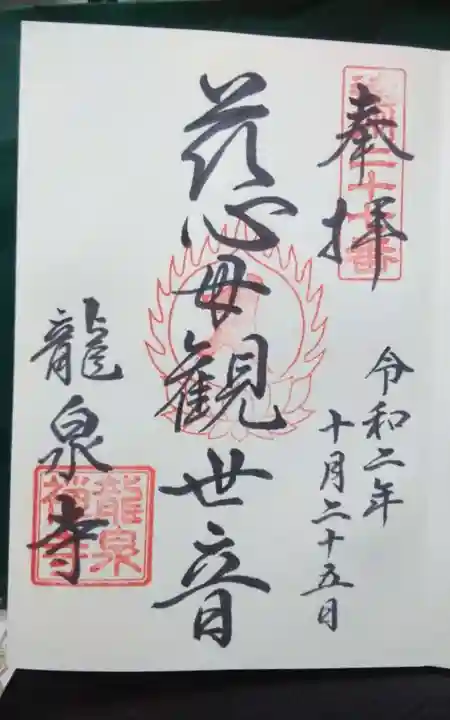 奉拝
二十七番
令和二年
十月二十五日
慈母観世音
龍泉寺
龍泉
禅寺